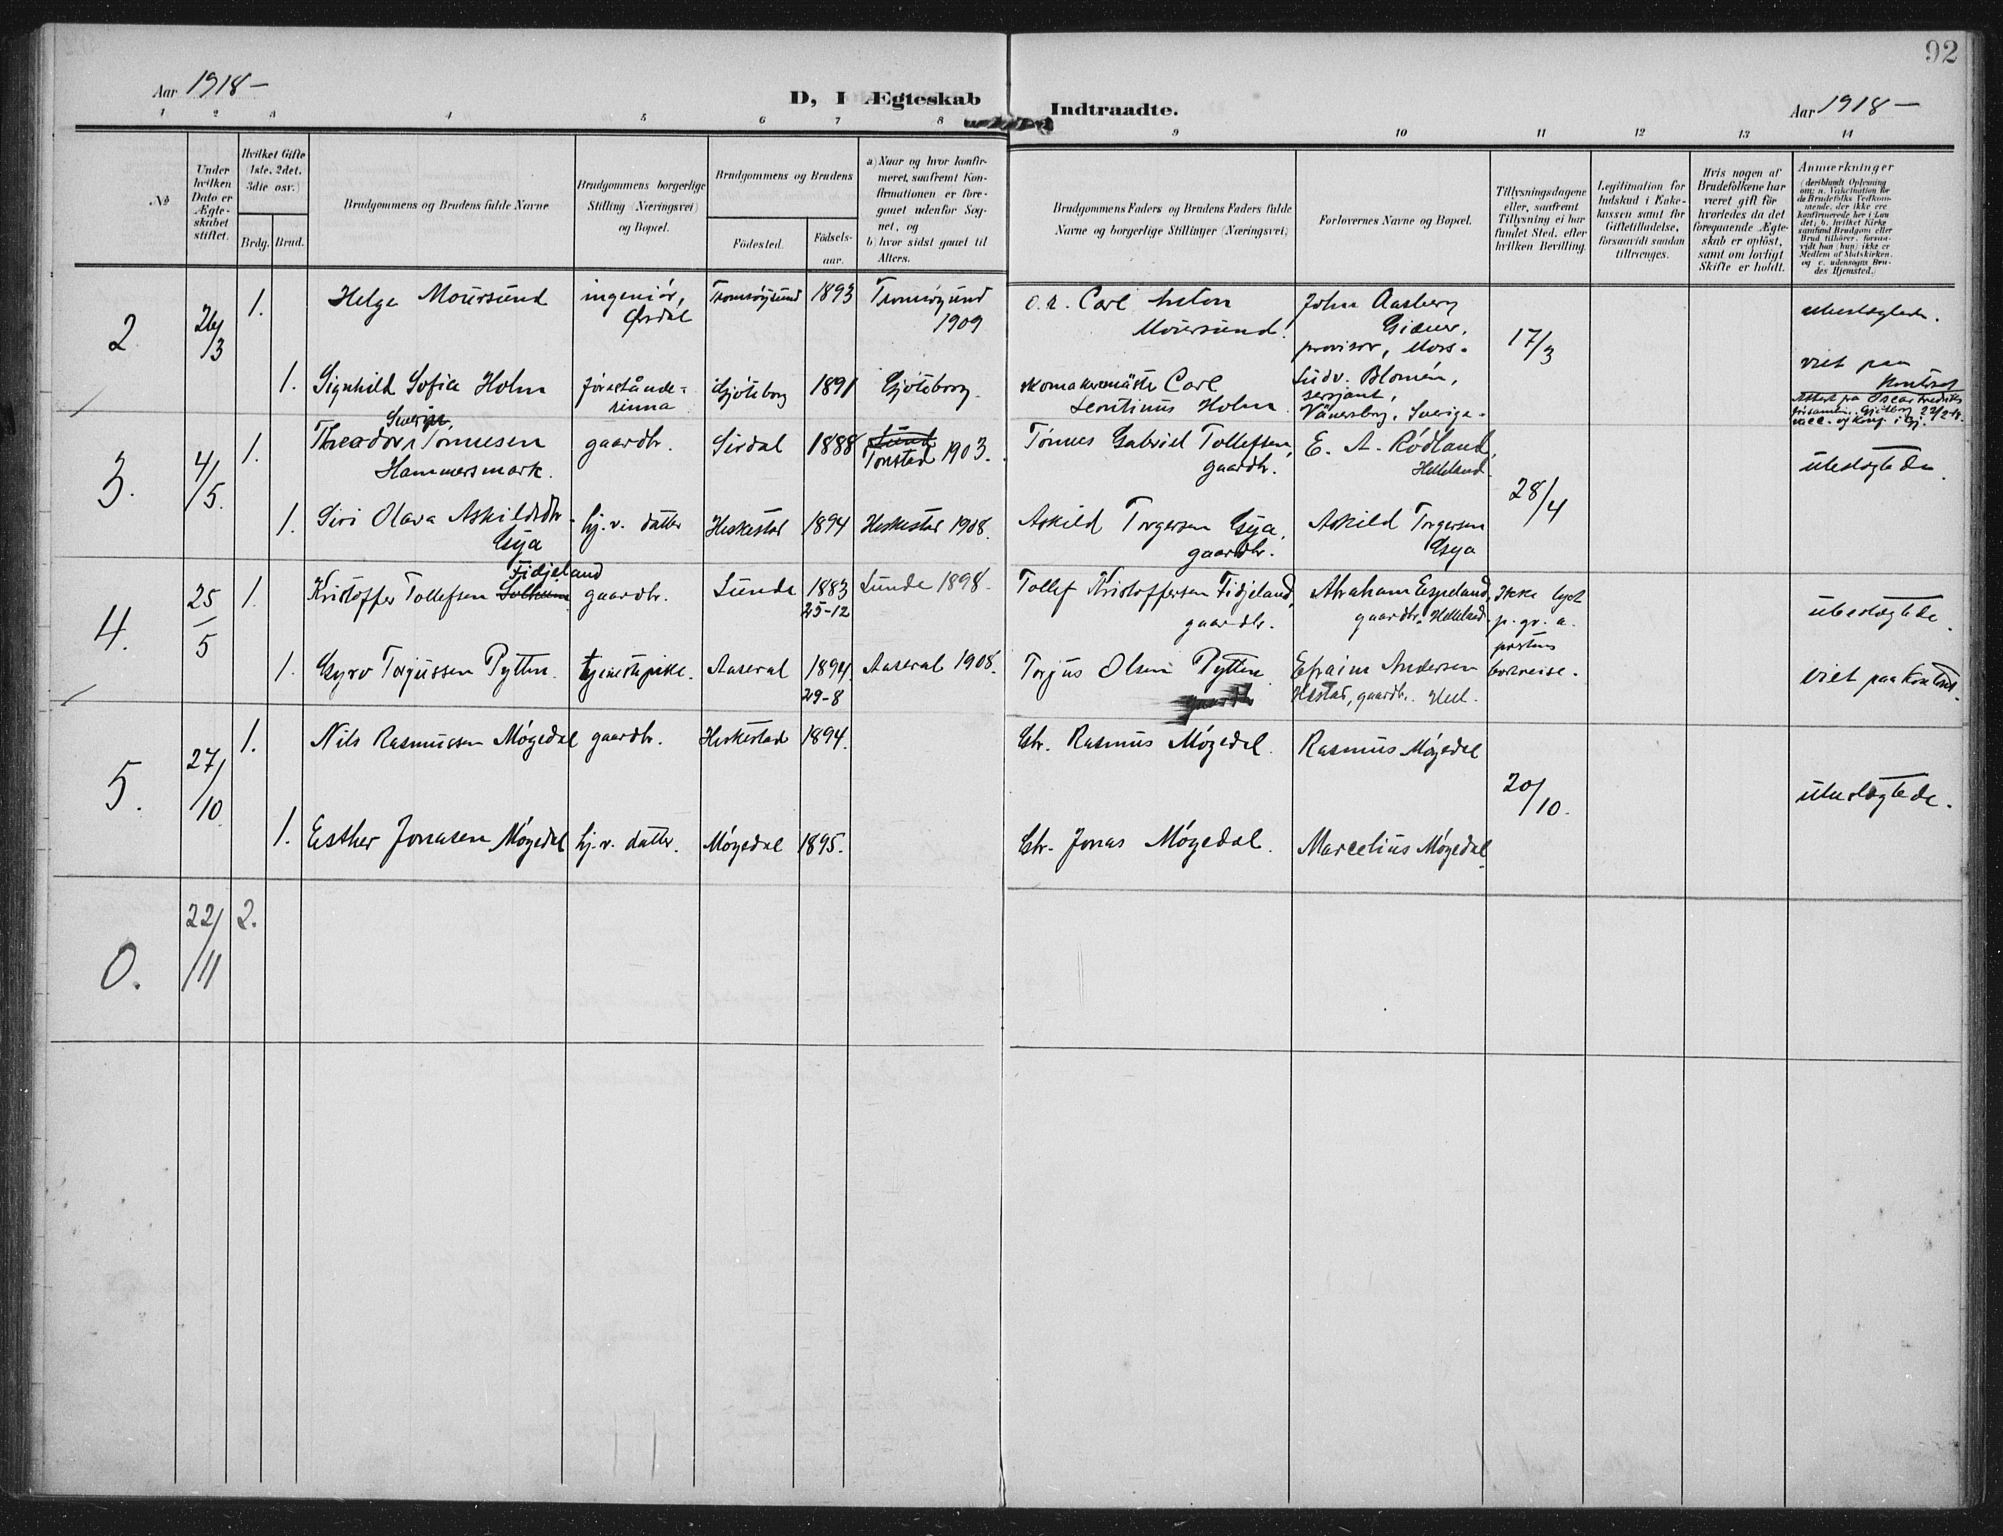 92
Aar 1918 –
D, I Ægteskab Indtraadte.
Aar 1918 –
1 2 3 4 5 6 7 8 9 10 11 12 13 14
№
Under hvilken Dato er Ægteskabet stiftet.
Hvilket Gifte (1ste, 2det, 3die osv.)
Brdg. Brud.
Brudgommens og Brudens fulde Navne
Brudgommens borgerlige Stilling (Næringsvei) og Bopæl.
Brudgommens og Brudens
Fødested.
Fødselsaar.
a) Naar og hvor konfirmeret, saafremt Konfirmationen er foregaaet udenfor Sognet, og
b) hvor sidst gaaet til Alters.
Brudgommens Faders og Brudens Faders fulde Navne og borgerlige Stillinger (Næringsvei)
Forlovernes Navne og Bopæl.
Tillysningsdagene eller, saafremt Tillysning ei har fundet Sted, efter hvilken Bevilling.
Legitimation for Indskud i Enkekassen samt for Giftetilladelse, forsaavidt saadan tiltrænges.
Hvis nogen af Brudefolkene har været gift før hvorledes da det foregaaende Ægteskab er opløst, samt om lovligt Skifte er holdt.
Anmærkninger
(deriblandt Oplysning om: a. Vakcination for de Brudefolks Vedkommende, der ikke ere konfirmerede her i Landet; b. hvilket Kirkesamfund Brudgom eller Brud tilhører, forsaavidt han (hun) ikke er Medlem af Statskirken, og c. udensogns Brudes Hjemsted.)
2 26/3 1. Helge Moursund ingeniør, Ørsdal Tromsøysund 1893 Tromsøysund 1909
Carl Anton Moursund.
John Aasberg Giæver, provisor, Moss.
17/3
ubeslægtede.
1. Signhild Sofia Holm föreståndarinna Gjøteborg 1891 Gjøteborg.
skomakaremäster Carl Leontinus Holm
Ludv. Blomén, sersjant, Vänersborg, Sverige.
viet paa kontoret
Attest på Oscar Fredriks
3. 4/5. 1. Theodor Severin Tønnesen Hammersmark. gaardbr. Sirdal 1888 Lund Tonstad 1903.
Tønnes Gabriel Tollefsen, gaardbr.
E. A. Rødland, Helleland.
28/4
ubeslegtede
1. Siri Olava Askildsdtr. Eya hj.v. datter Heskestad 1894 Heskestad 1908.
Askild Torgersen Eya, gaardbr.
Askild Torgersen Eya
4. 25/5 1. Kristoffer Tollefsen Solheim Fidjeland gaardbr. Lunde 1883 25-12 Lunde 1898.
Tollef Kristoffersen Fidjeland, gaardbr.
Abraham Espeland, gaardbr. Helleland.
Ikke lyst p. gr. a. prestens bortreise.
ubeslegtede.
1. Gyro Torjussen Pytten tjenestepike. Aaseral 1894. 29-8 Aaseral 1908.
Torjus Olsen Pytten gaardbr
Efraim Andersen Hestad, gaardbr. Hell.
viet paa kontoret.
5. 27/10. 1. Nils Rasmussen Møgedal gaardbr. Heskestad 1894.
Gbr. Rasmus Møgedal.
Rasmus Møgedal
20/10.
ubeslægtede.
1. Esther Jonasen Møgedal hj.v. datter. Møgedal 1895.
Gbr. Jonas Møgedal.
Marcelius Møgedal.
0. 22/11 2.